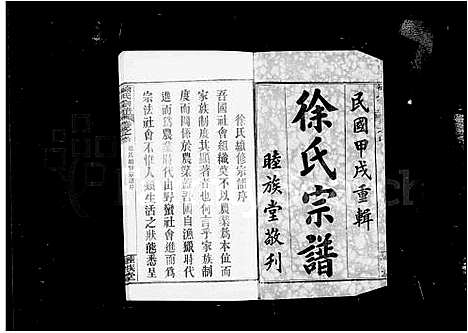 民國甲戌重輯
徐氏宗譜
睦族堂敬刊
徐氏續修宗譜序
吾國社會組織莫不以農業為本位而
家族制度其顯著者也何言乎家族制
度而關係於農業蓋溯自漁獵時代
進而為農業時代由野蠻社會進而為
宗法社會不惟人類生活之狀態悉呈